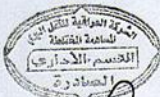 الشركة العراقية للنقل البري
المساهمة المختلطة
القسم الاداري
الصادرة